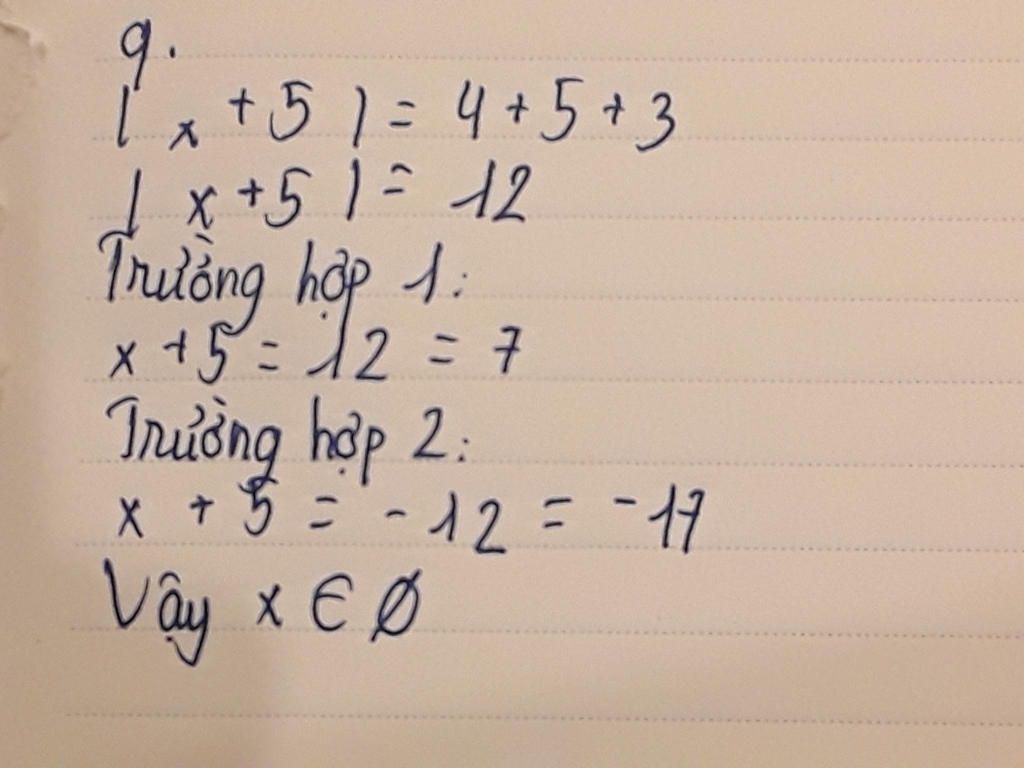 9.
| x + 5 | = 4 + 5 + 3
| x + 5 | = 12
Trường hợp 1:
x + 5 = 12 = 7
Trường hợp 2:
x + 5 = - 12 = - 17
Vậy x ∈ Ø